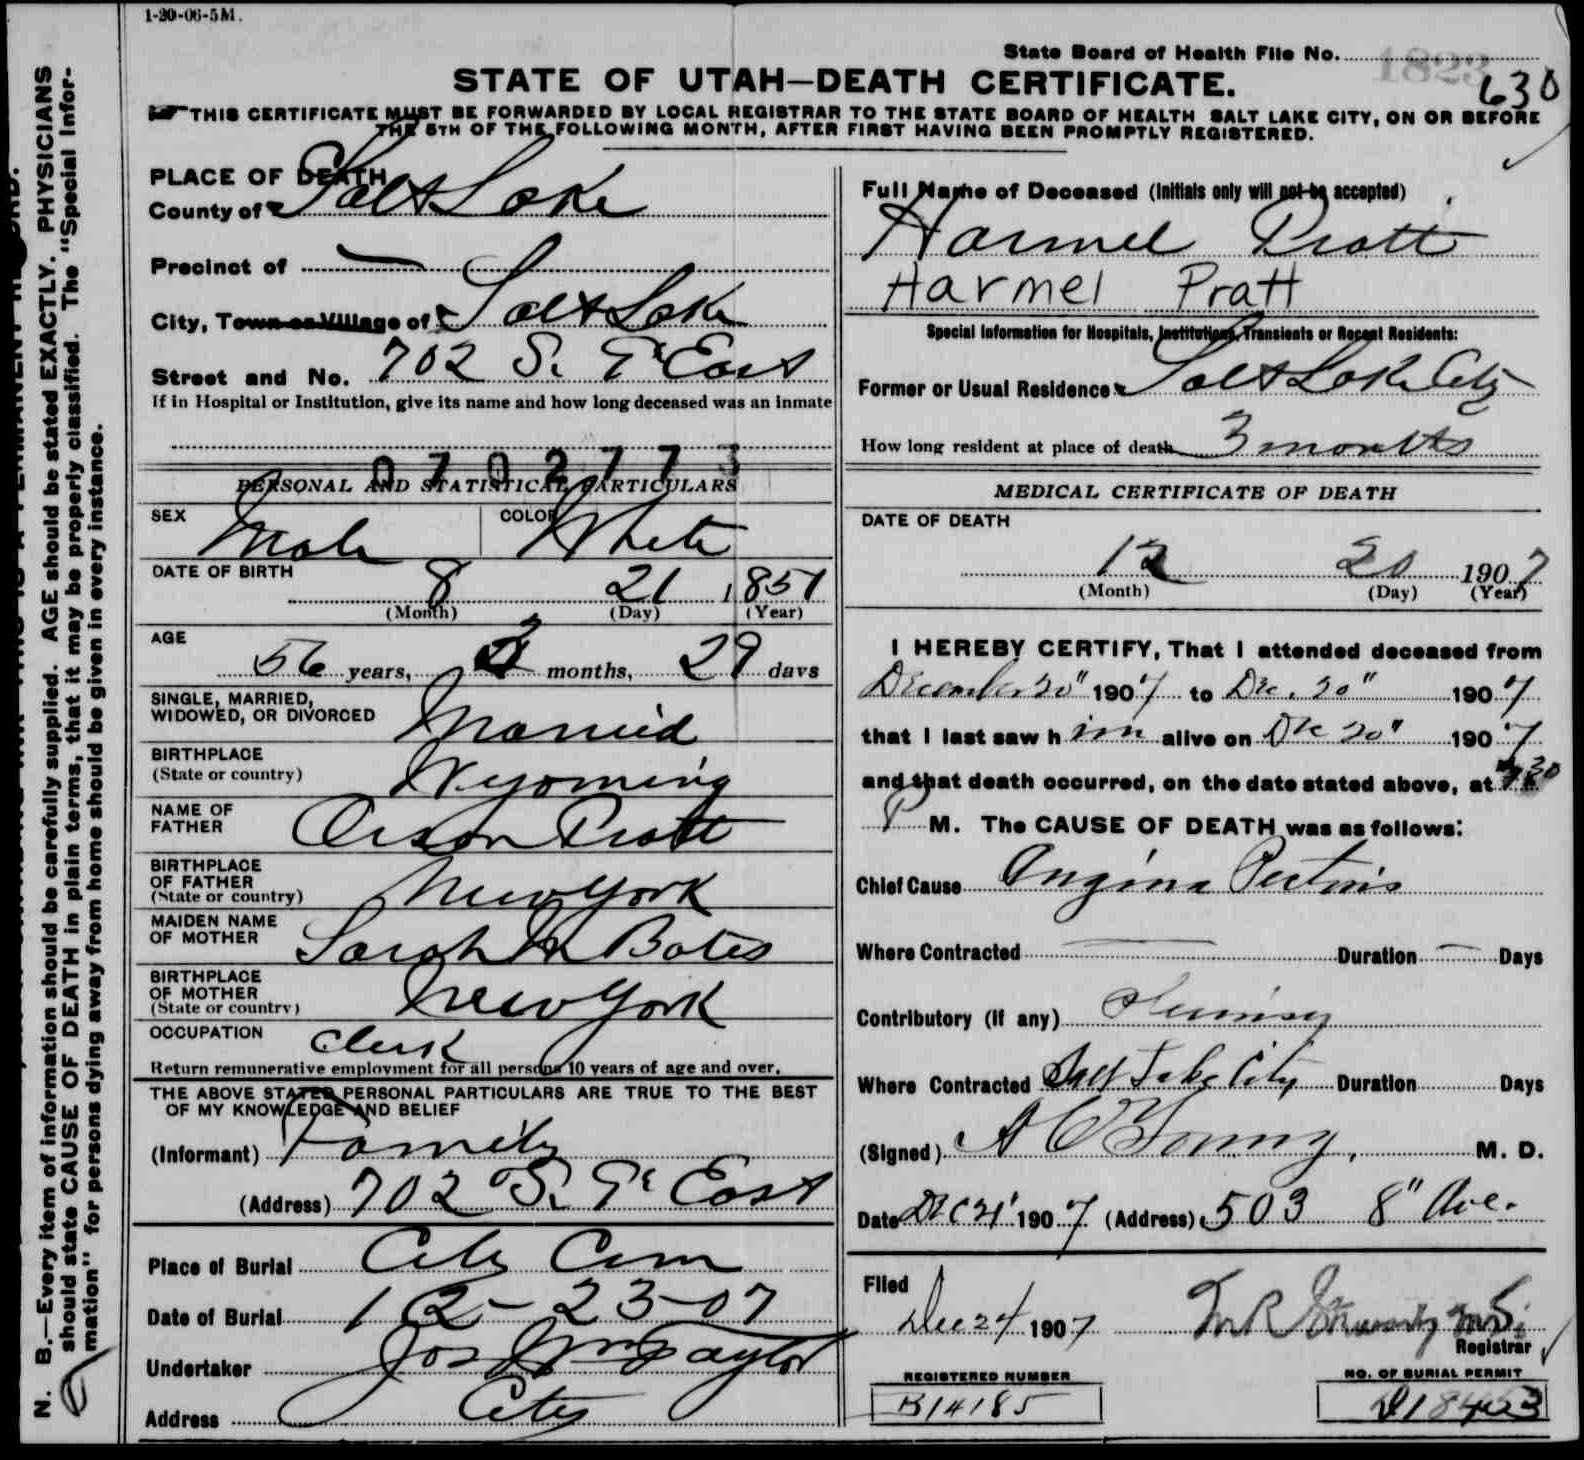 1-20-06-5M.
State Board of Health File No. 1823
630
STATE OF UTAH—DEATH CERTIFICATE.
THIS CERTIFICATE MUST BE FORWARDED BY LOCAL REGISTRAR TO THE STATE BOARD OF HEALTH SALT LAKE CITY, ON OR BEFORE
THE 5TH OF THE FOLLOWING MONTH, AFTER FIRST HAVING BEEN PROMPTLY REGISTERED.
N. B.—Every item of information should be carefully supplied. AGE should be stated EXACTLY. PHYSICIANS
should state CAUSE OF DEATH in plain terms, that it may be properly classified. The "Special Infor-
mation" for persons dying away from home should be given in every instance.
PLACE OF DEATH
County of Salt Lake
Precinct of —
City, Town or Village of Salt Lake
Street and No. 702 S. East
If in Hospital or Institution, give its name and how long deceased was an inmate
0702773
PERSONAL AND STATISTICAL PARTICULARS
SEX Male COLOR White
DATE OF BIRTH
8 21 1851
(Month) (Day) (Year)
AGE
56 years, 3 months, 29 days
SINGLE, MARRIED,
WIDOWED, OR DIVORCED Married
BIRTHPLACE
(State or country) Wyoming
NAME OF
FATHER Orson Pratt
BIRTHPLACE
OF FATHER
(State or country) New York
MAIDEN NAME
OF MOTHER Sarah M Bates
BIRTHPLACE
OF MOTHER
(State or country) New York
OCCUPATION Clerk
Return remunerative employment for all persons 10 years of age and over.
THE ABOVE STATED PERSONAL PARTICULARS ARE TRUE TO THE BEST
OF MY KNOWLEDGE AND BELIEF
(Informant) Family
(Address) 702 S. East
Place of Burial City Cem
Date of Burial 12-23-07
Undertaker Jos Wm Taylor
Address City
Full Name of Deceased (Initials only will not be accepted)
Harmel Pratt
Harmel Pratt
Special Information for Hospitals, Institutions, Transients or Recent Residents:
Former or Usual Residence Salt Lake City
How long resident at place of death 3 months
MEDICAL CERTIFICATE OF DEATH
DATE OF DEATH
12 20 1907
(Month) (Day) (Year)
I HEREBY CERTIFY, That I attended deceased from
December 20" 1907 to Dec. 20" 1907
that I last saw him alive on Dec 20" 1907
and that death occurred, on the date stated above, at 30
P M. The CAUSE OF DEATH was as follows:
Chief Cause Angina Pectoris
Where Contracted — Duration — Days
Contributory (if any)
Where Contracted Salt Lake City Duration Days
(Signed) A C Young, M. D.
Date Dec 21 1907 (Address) 503 8" Ave.
Filed
Dec 24 1907 M.D.
Registrar
REGISTERED NUMBER
B14185
NO. OF BURIAL PERMIT